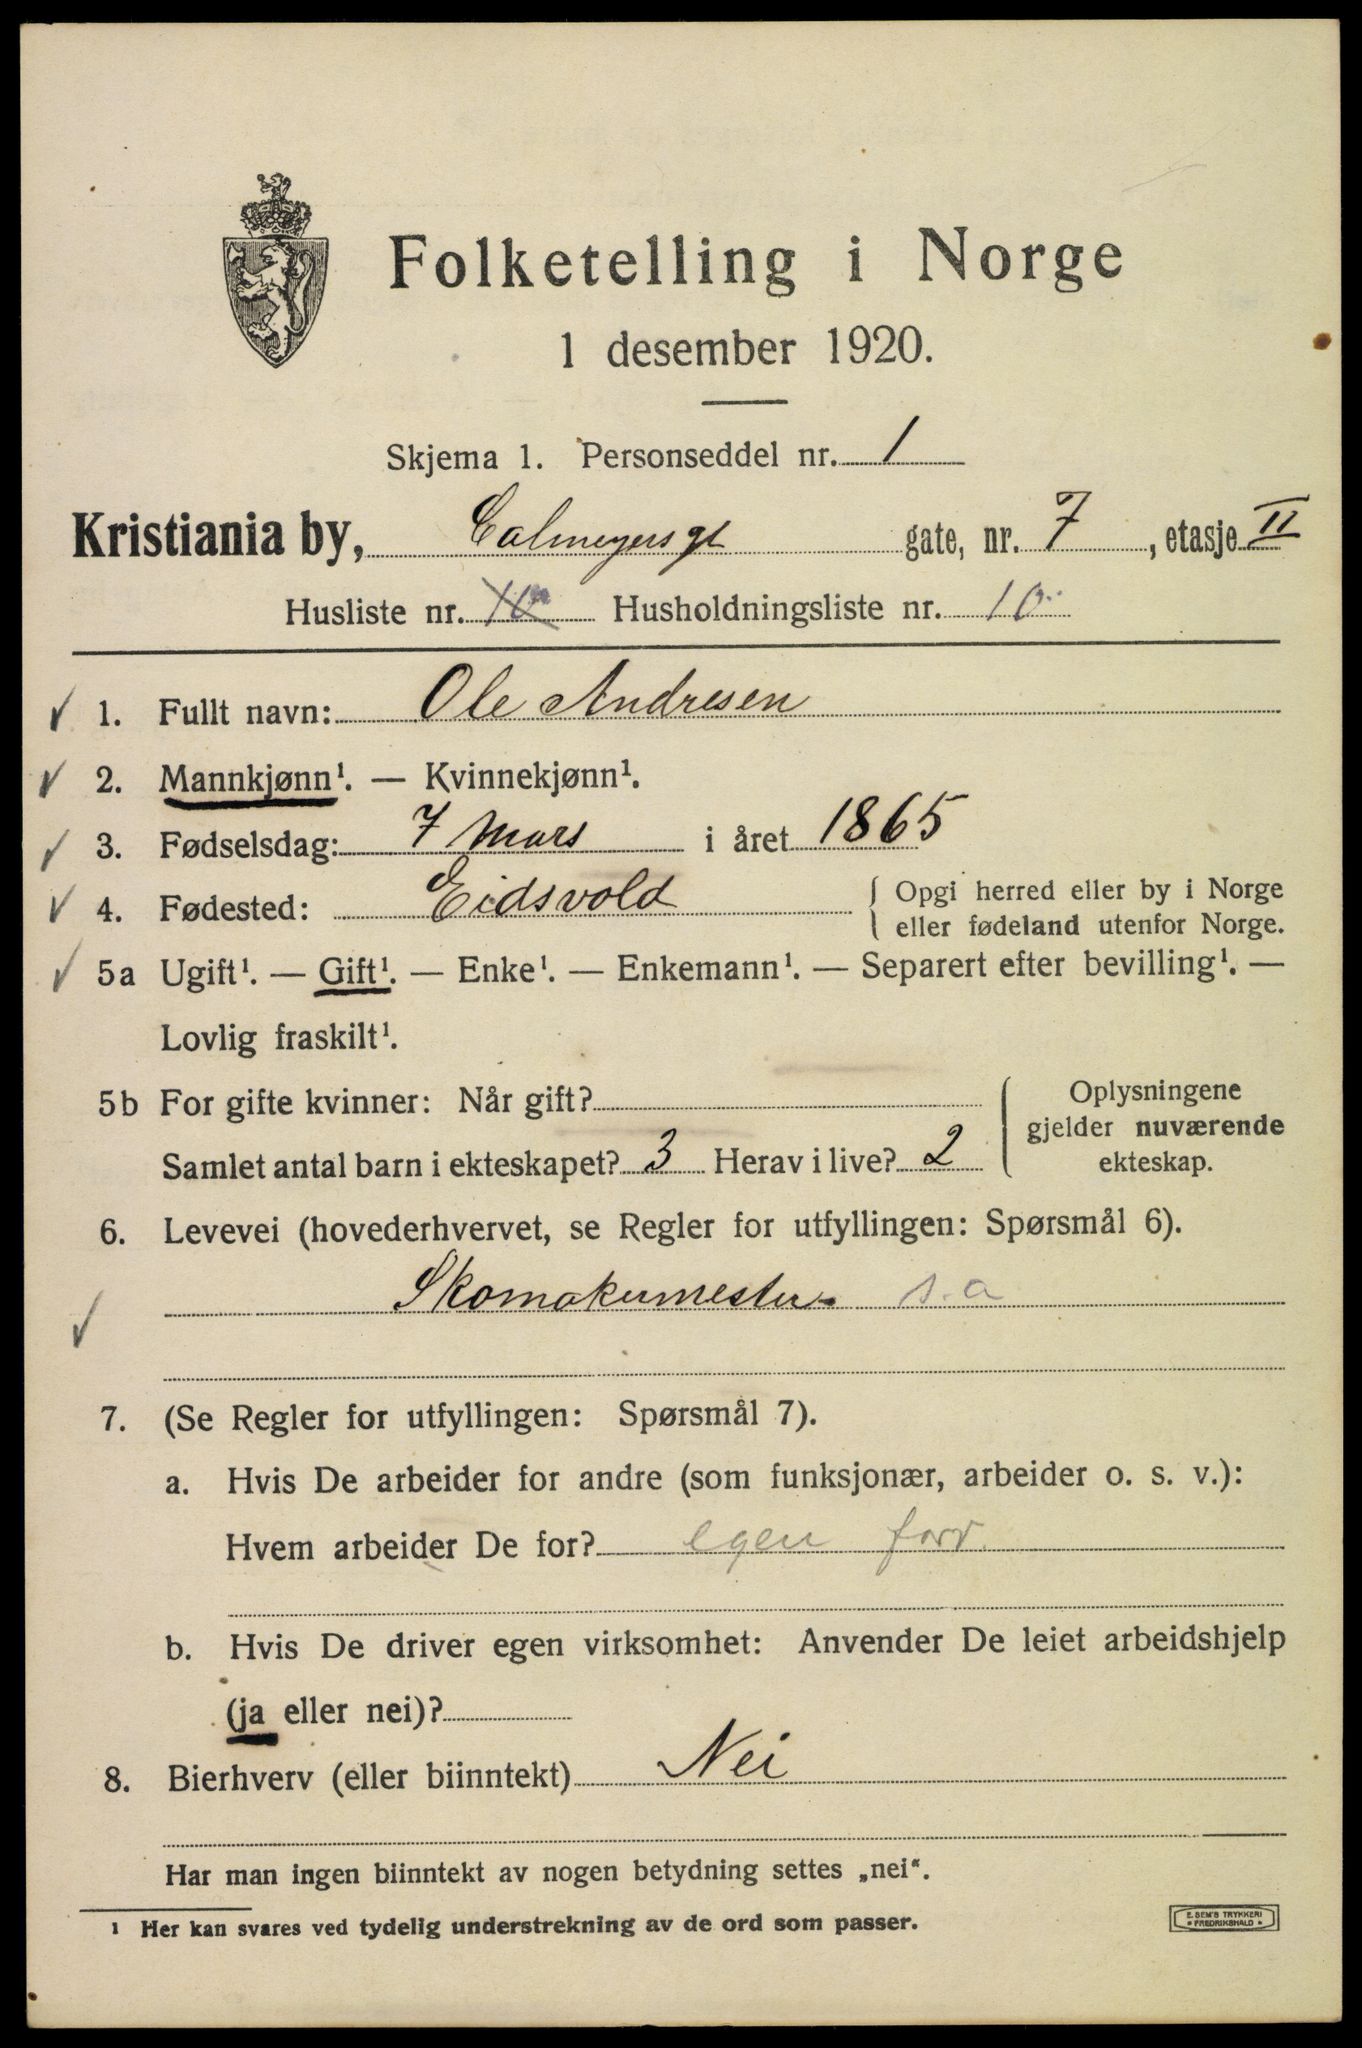 Folketelling i Norge
1 desember 1920.
Skjema 1. Personseddel nr. 1
Kristiania by, Calmeyersgt gate, nr. 7, etasje II
Husliste nr. 10 Husholdningsliste nr. 10
1. Fullt navn: Ole Andresen
2. Mannkjønn¹. — Kvinnekjønn¹.
3. Fødselsdag: 7 Mars i året 1865
4. Fødested: Eidsvold { Opgi herred eller by i Norge
eller fødeland utenfor Norge.
5a Ugift¹. — Gift¹. — Enke¹. — Enkemann¹. — Separert efter bevilling¹. —
Lovlig fraskilt¹.
5b For gifte kvinner: Når gift?
Samlet antal barn i ekteskapet? 3 Herav i live? 2
Oplysningene
gjelder nuværende
ekteskap.
6. Levevei (hovederhvervet, se Regler for utfyllingen: Spørsmål 6).
Skomakermester s.a
7. (Se Regler for utfyllingen: Spørsmål 7).
a. Hvis De arbeider for andre (som funksjonær, arbeider o. s. v.):
Hvem arbeider De for? egen forr.
b. Hvis De driver egen virksomhet: Anvender De leiet arbeidshjelp
(ja eller nei)?
8. Bierhverv (eller biinntekt) Nei
Har man ingen biinntekt av nogen betydning settes „nei“.
¹ Her kan svares ved tydelig understrekning av de ord som passer.
E. SEM'S TRYKKERI
* FREDRIKSHALD *